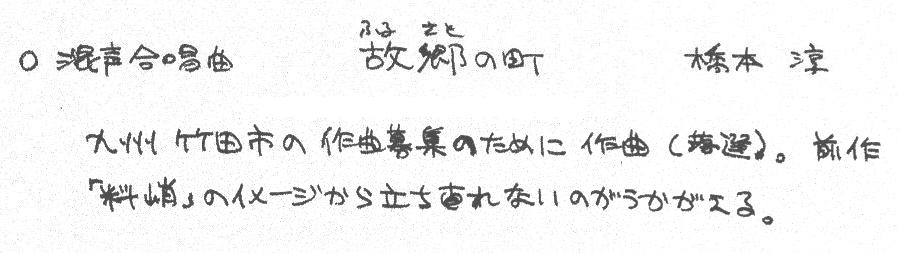 ふる さと
○ 混声合唱曲 故郷の町 橋本 涼
九州 竹田市の 作曲募集のために 作曲(落選)。前作
「料峭」のイメージから立ち直れないのがうかがえる。